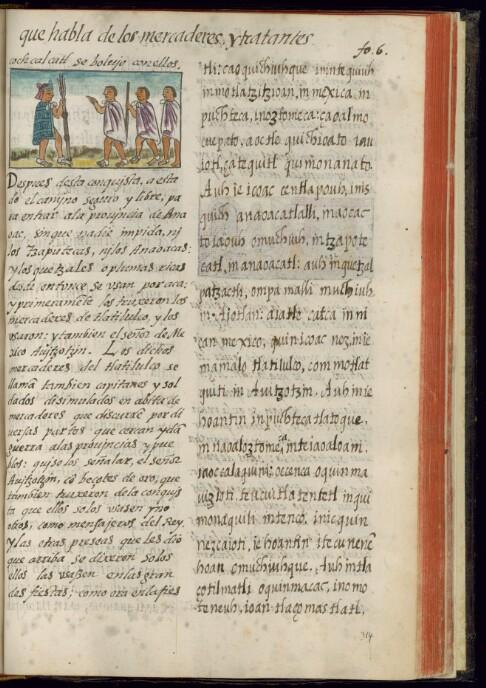 que habla de los mercaderes, y tratantes
fo. 6.
cochcalcatl se boluio con ellos.
Despues desta conquista, a esta
do el camino seguro y libre; pa
ra entrar a la prouincia de Ana
oac, sin que nadie impida, nj
los Tzaputecas, nj los Anaoacas:
y los quetzales o plumas ricas
desde entonce se vsan por aca:
y primeramẽte los truxeron los
mercaderes de tlatilulco, y los
vsaron: y tambien el señor de Me
xico Aujtzotzin. Los dichos
mercaderes del tlatilulco se
llamã tambien capitanes y sol
dados disimulados en abito de
mercaderes que discurrẽ por di
uersas partes que cercan y dã
guerra a las proujncias y pue
blos: qujso los señalar, el señor
Aujtzotzin, cõ beçotes de oro, que
tambien truxeron de la conquis
ta que ellos solos vsasen y no
otros, como mensajeros del Rey.
Y las otras preseas que les dio
que arriba se dixeron solos
ellos las vsassen en las gran
des fiestas; como era en la fies
tli: ca oqujchiuhque injntequiuh
in motlatzitzioan, in mexica in
puchteca, in oztomeca: ca oalmo
cuepato, a oc tle qujchioato iau
iotl, ça tequjtl qujmonanato.
Auh ie icoac centlapouh, inje
qujçoz anaoacatlalli, in aocac
to iaouh omuchiuh, in tzapote
catl, in anaoacatl: auh in quetzal
patzactli, ompa malli muchiuh
in Aiotlan: aiatle catca in nj
can mexico, qujnicoac nez, injc
mamalo tlatilulco, commotlat
qujti in Aujtzotzin. Auh in ie
hoantin in puchtecatlatoque,
in naoaloztomeca, in teiaoaloanj,
iaoc calaqujnj: oc cenca oqujnma
ujzioti teucujtlatentetl inquj
monaqujli intenco, injc qujn
nezcaioti, ie hoantin itecunenẽ
hoan omuchiuhque. Auh in tla
çotilmatli oqujnmacac, in omo
teneuh, ioan tlaçomaxtlatl.
314